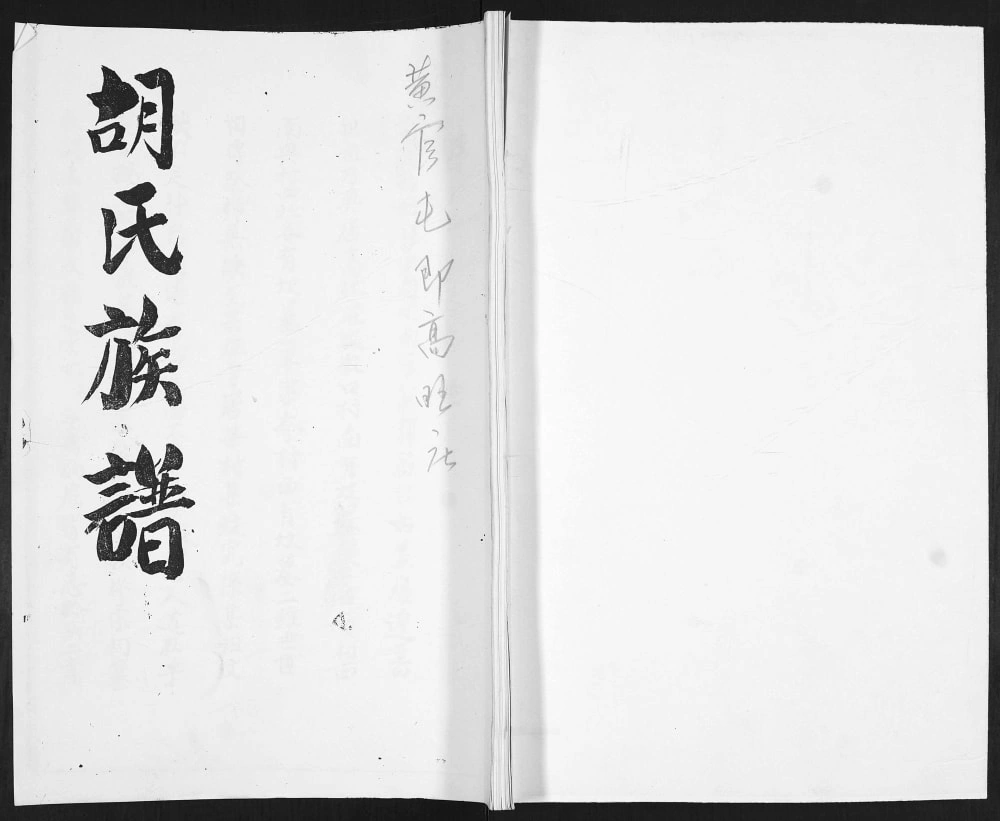 黄官屯即高旺社
胡氏族譜